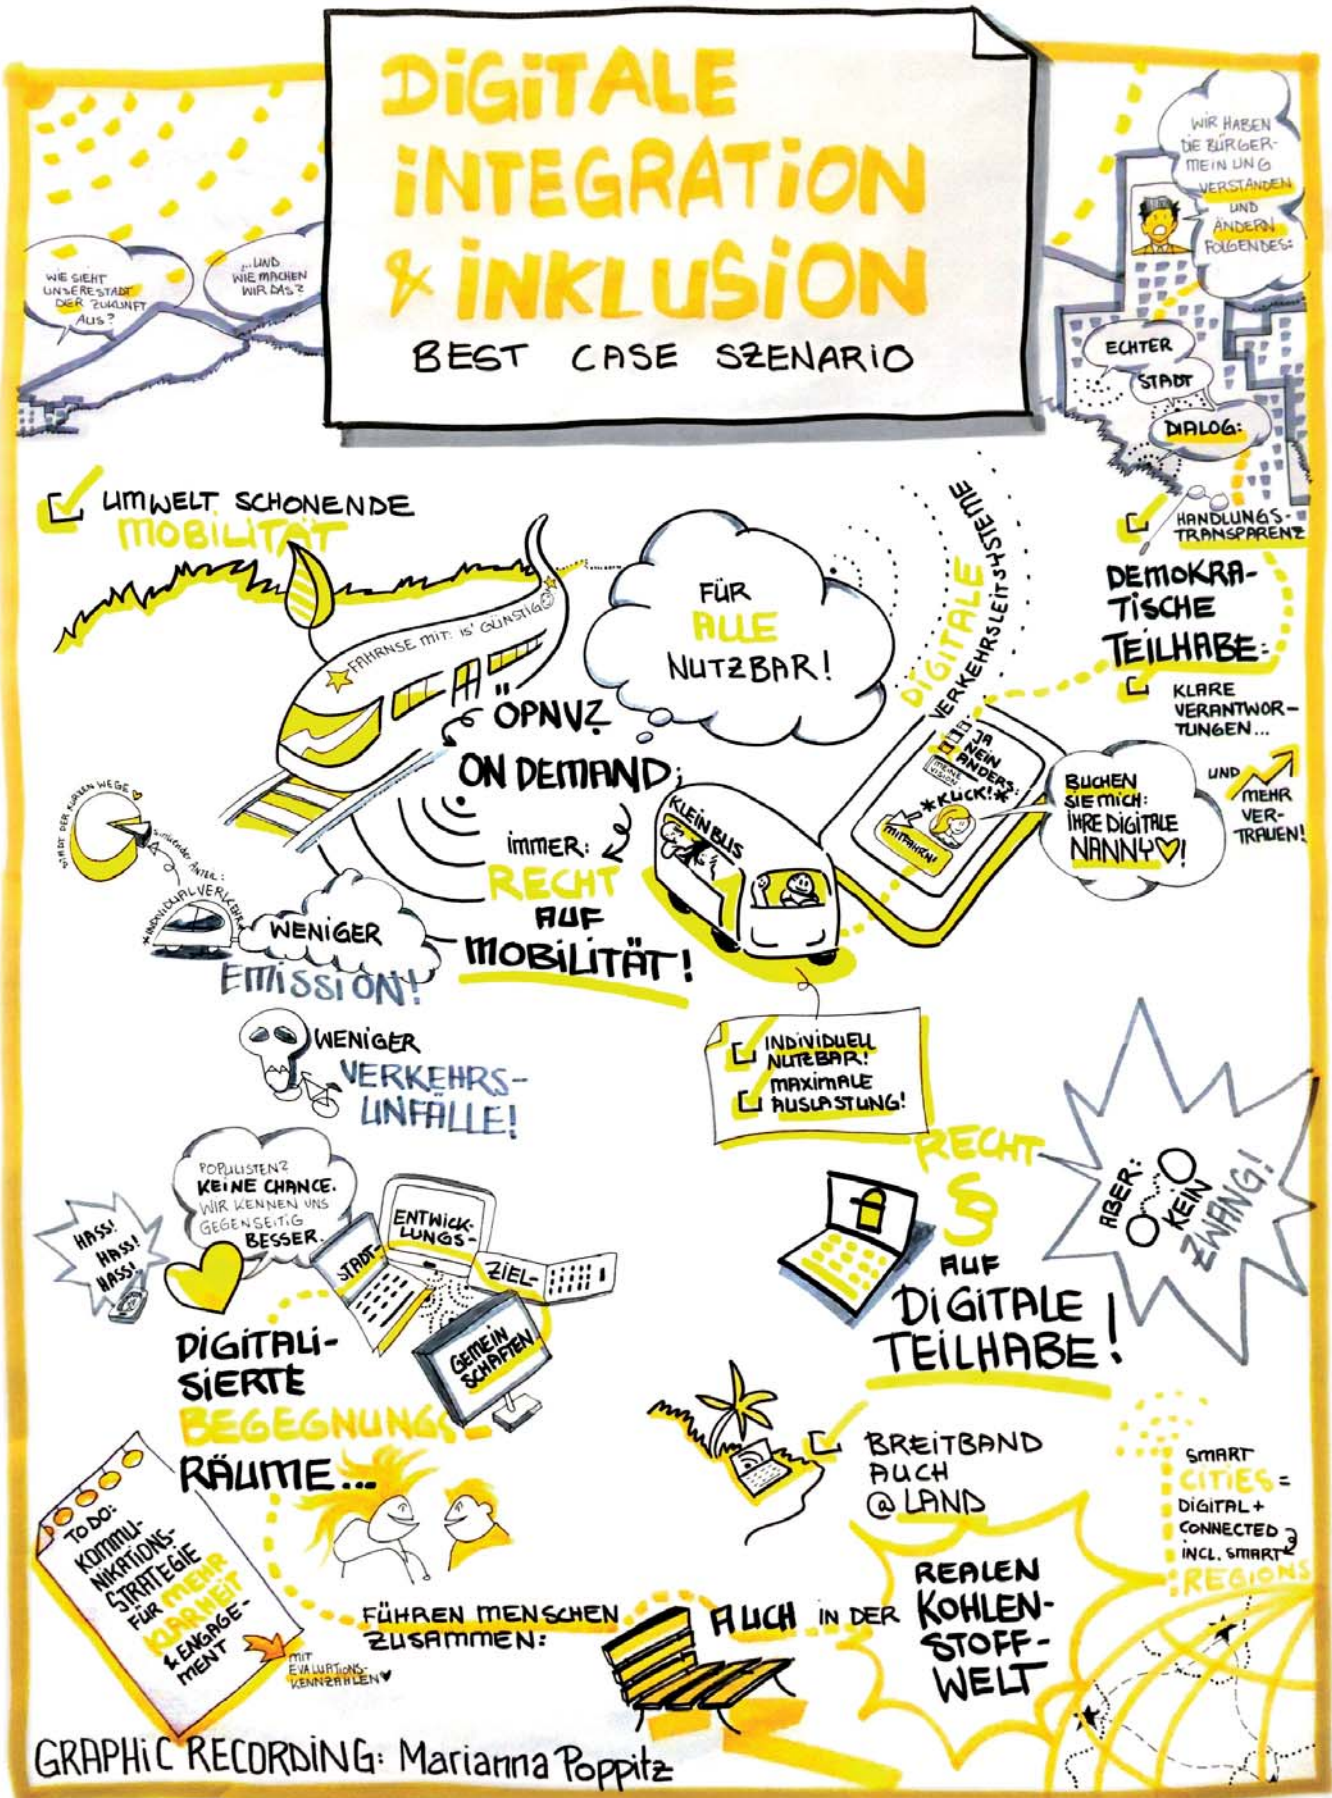 DiGiTALE
iNTEGRATiON
& iNKLUSiON
BEST CASE SZENARIO
WIE SIEHT
UNSERE STADT
DER ZUKUNFT
AUS?
...UND
WIE MACHEN
WIR DAS?
WIR HABEN
DIE BÜRGER-
MEINUNG
VERSTANDEN
UND
ÄNDERN
FOLGENDES:
ECHTER
STADT
DIALOG:
HANDLUNGS-
TRANSPARENZ
DEMOKRA-
TISCHE
TEILHABE:
KLARE
VERANTWOR-
TUNGEN...
UND
MEHR
VER-
TRAUEN!
UMWELT SCHONENDE
MOBILITÄT
FAHRNSE MIT: IS' GÜNSTIG
FÜR
ALLE
NUTZBAR!
DIGITALE
VERKEHRSLEITSYSTEME
JA
NEIN
ANDERS:
MEINE
VISION
*KLICK!*
MITFAHREN!
BUCHEN
SIE MICH:
IHRE DIGITALE
NANNY♡!
ÖPNV?
ON DEMAND;
IMMER:
RECHT
AUF
MOBILITÄT!
KLEINBUS
STADT DER KURZEN WEGE
ANTEIL:
*INDIVIDUALVERKEHR
WENIGER
EMISSION!
WENIGER
VERKEHRS-
UNFÄLLE!
INDIVIDUELL
NUTZBAR!
MAXIMALE
AUSLASTUNG!
POPULISTEN?
KEINE CHANCE.
WIR KENNEN UNS
GEGENSEITIG
BESSER.
HASS!
HASS!
HASS!
STADT-
ENTWICK-
LUNGS-
ZIEL-
GEMEIN
SCHAFTEN
RECHT
§
AUF
DIGITALE
TEILHABE!
ABER:
KEIN
ZWANG!
DIGITALI-
SIERTE
BEGEGNUNGS-
RÄUME...
BREITBAND
AUCH
@ LAND
SMART
CITIES =
DIGITAL +
CONNECTED
INCL. SMART
REGIONS
TO DO:
KOMMU-
NIKATIONS-
STRATEGIE
FÜR MEHR
KLARHEIT
& ENGAGE-
MENT
MIT
EVALUATIONS-
KENNZAHLEN♥
FÜHREN MENSCHEN
ZUSAMMEN:
AUCH IN DER
REALEN
KOHLEN-
STOFF-
WELT
GRAPHIC RECORDING: Marianna Poppitz